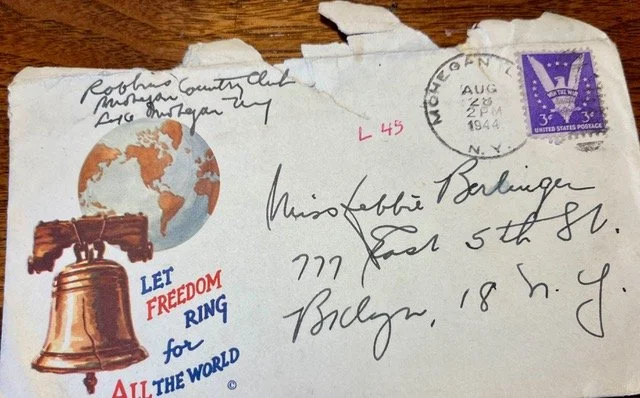 Robbins Country Club
Mohegan Country
Lake Mohegan NY
L 45
MOHEGAN L
AUG
28
2 PM
1944
N.Y.
WIN THE WAR
3¢ 3¢
UNITED STATES POSTAGE
Miss Debbie Berlinger
777 East 5th St.
Bklyn, 18 N.Y.
LET
FREEDOM
RING
for
ALL THE WORLD
©